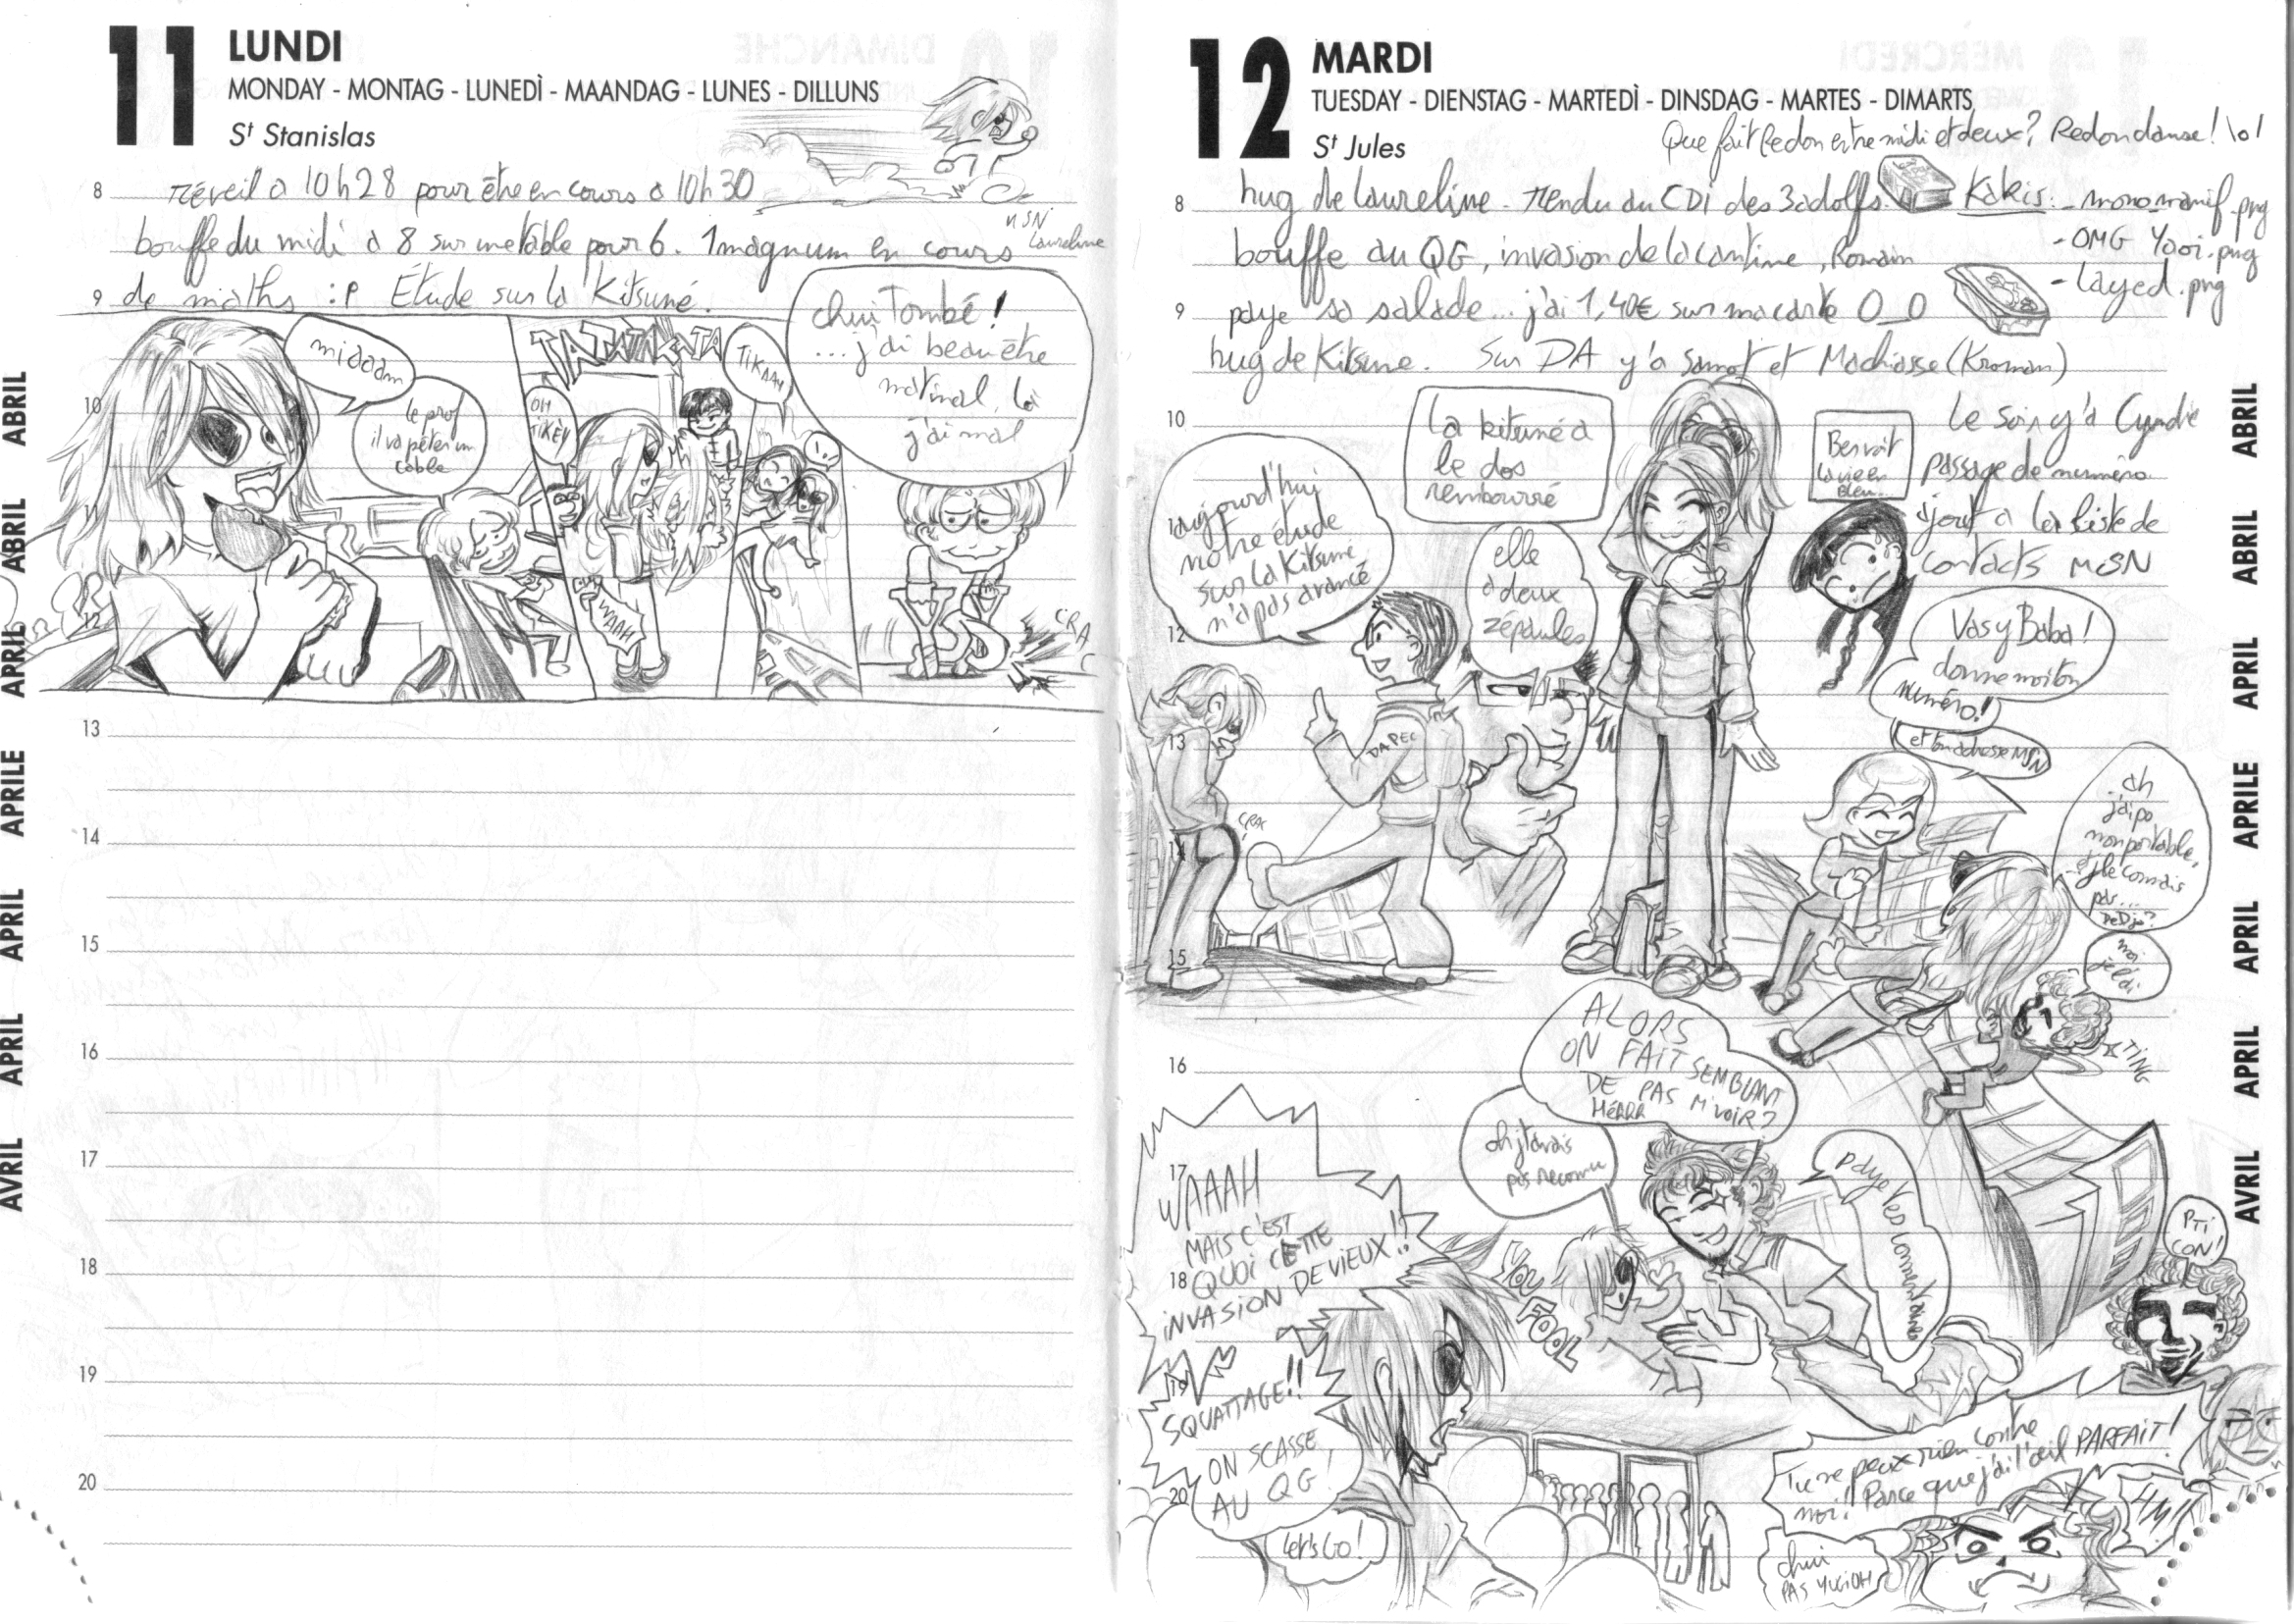 11 LUNDI
MONDAY - MONTAG - LUNEDÌ - MAANDAG - LUNES - DILLUNS
St Stanislas
8
réveil à 10h28 pour être en cours à 10h30
MSN
Laureline
bouffe du midi à 8 sur une table pour 6. 1 magnum en cours
9
de maths :P Étude sur la Kitsuné.
miaaam
le prof
il va péter un
câble
TATATAKATA
OH
TIKÈÈ
TIKAAH
WAAAH
!
chui Tombé!
... j'ai beau être
matinal, là
j'ai mal
CRA
C
10
11
12
13
14
15
16
17
18
19
20
AVRIL APRIL APRIL APRILE APRIL ABRIL ABRIL
12 MARDI
TUESDAY - DIENSTAG - MARTEDÌ - DINSDAG - MARTES - DIMARTS
St Jules
Que fait Redon entre midi et deux? Redondanse! lol
8
hug de Laureline. rendu au CDI des 3 adolfs.
Kakis: - mono manif.png
- OMG Yaoi.png
- Layed.png
bouffe au QG, invasion de la cantine, Romain
9
paye sa salade... j'ai 1,40€ sur ma carte O_O
hug de Kitsune. Sur DA y'a et (Kroman)
10
Le soir y'a Cyndie
passage de numéro
ajout a la liste de
contacts MSN
aujourd'hui
notre étude
sur la Kitsuné
n'a pas avancé
La kitsuné a
le dos
rembourré
elle
a deux
zépaules
voit
la vie en
bleu...
12
13
DAPEC
CRAC
14
15
Vas y Baba!
donne moi ton
numéro!
et ton adresse MSN
ah
j'ai po
mon portable,
et j'le connais
pas...
moi
je l'ai
TING
16
ALORS
ON FAIT SEMBLANT
DE PAS M'VOIR?
HÉARR
oh j't'avais
pas reconnu
paye tes commentaires
YOU
FOOL
17
WAAAH
MAIS C'EST
QUOI CETTE
INVASION DE VIEUX!!
18
19
SQUATTAGE!!
ON SCASSE
AU QG!
20
Let's Go!
PTI
CON!
Tu ne peux rien contre
moi! Parce que j'ai l'œil PARFAIT!
chui
PAS YUGIOH
AVRIL APRIL APRIL APRILE APRIL ABRIL ABRIL